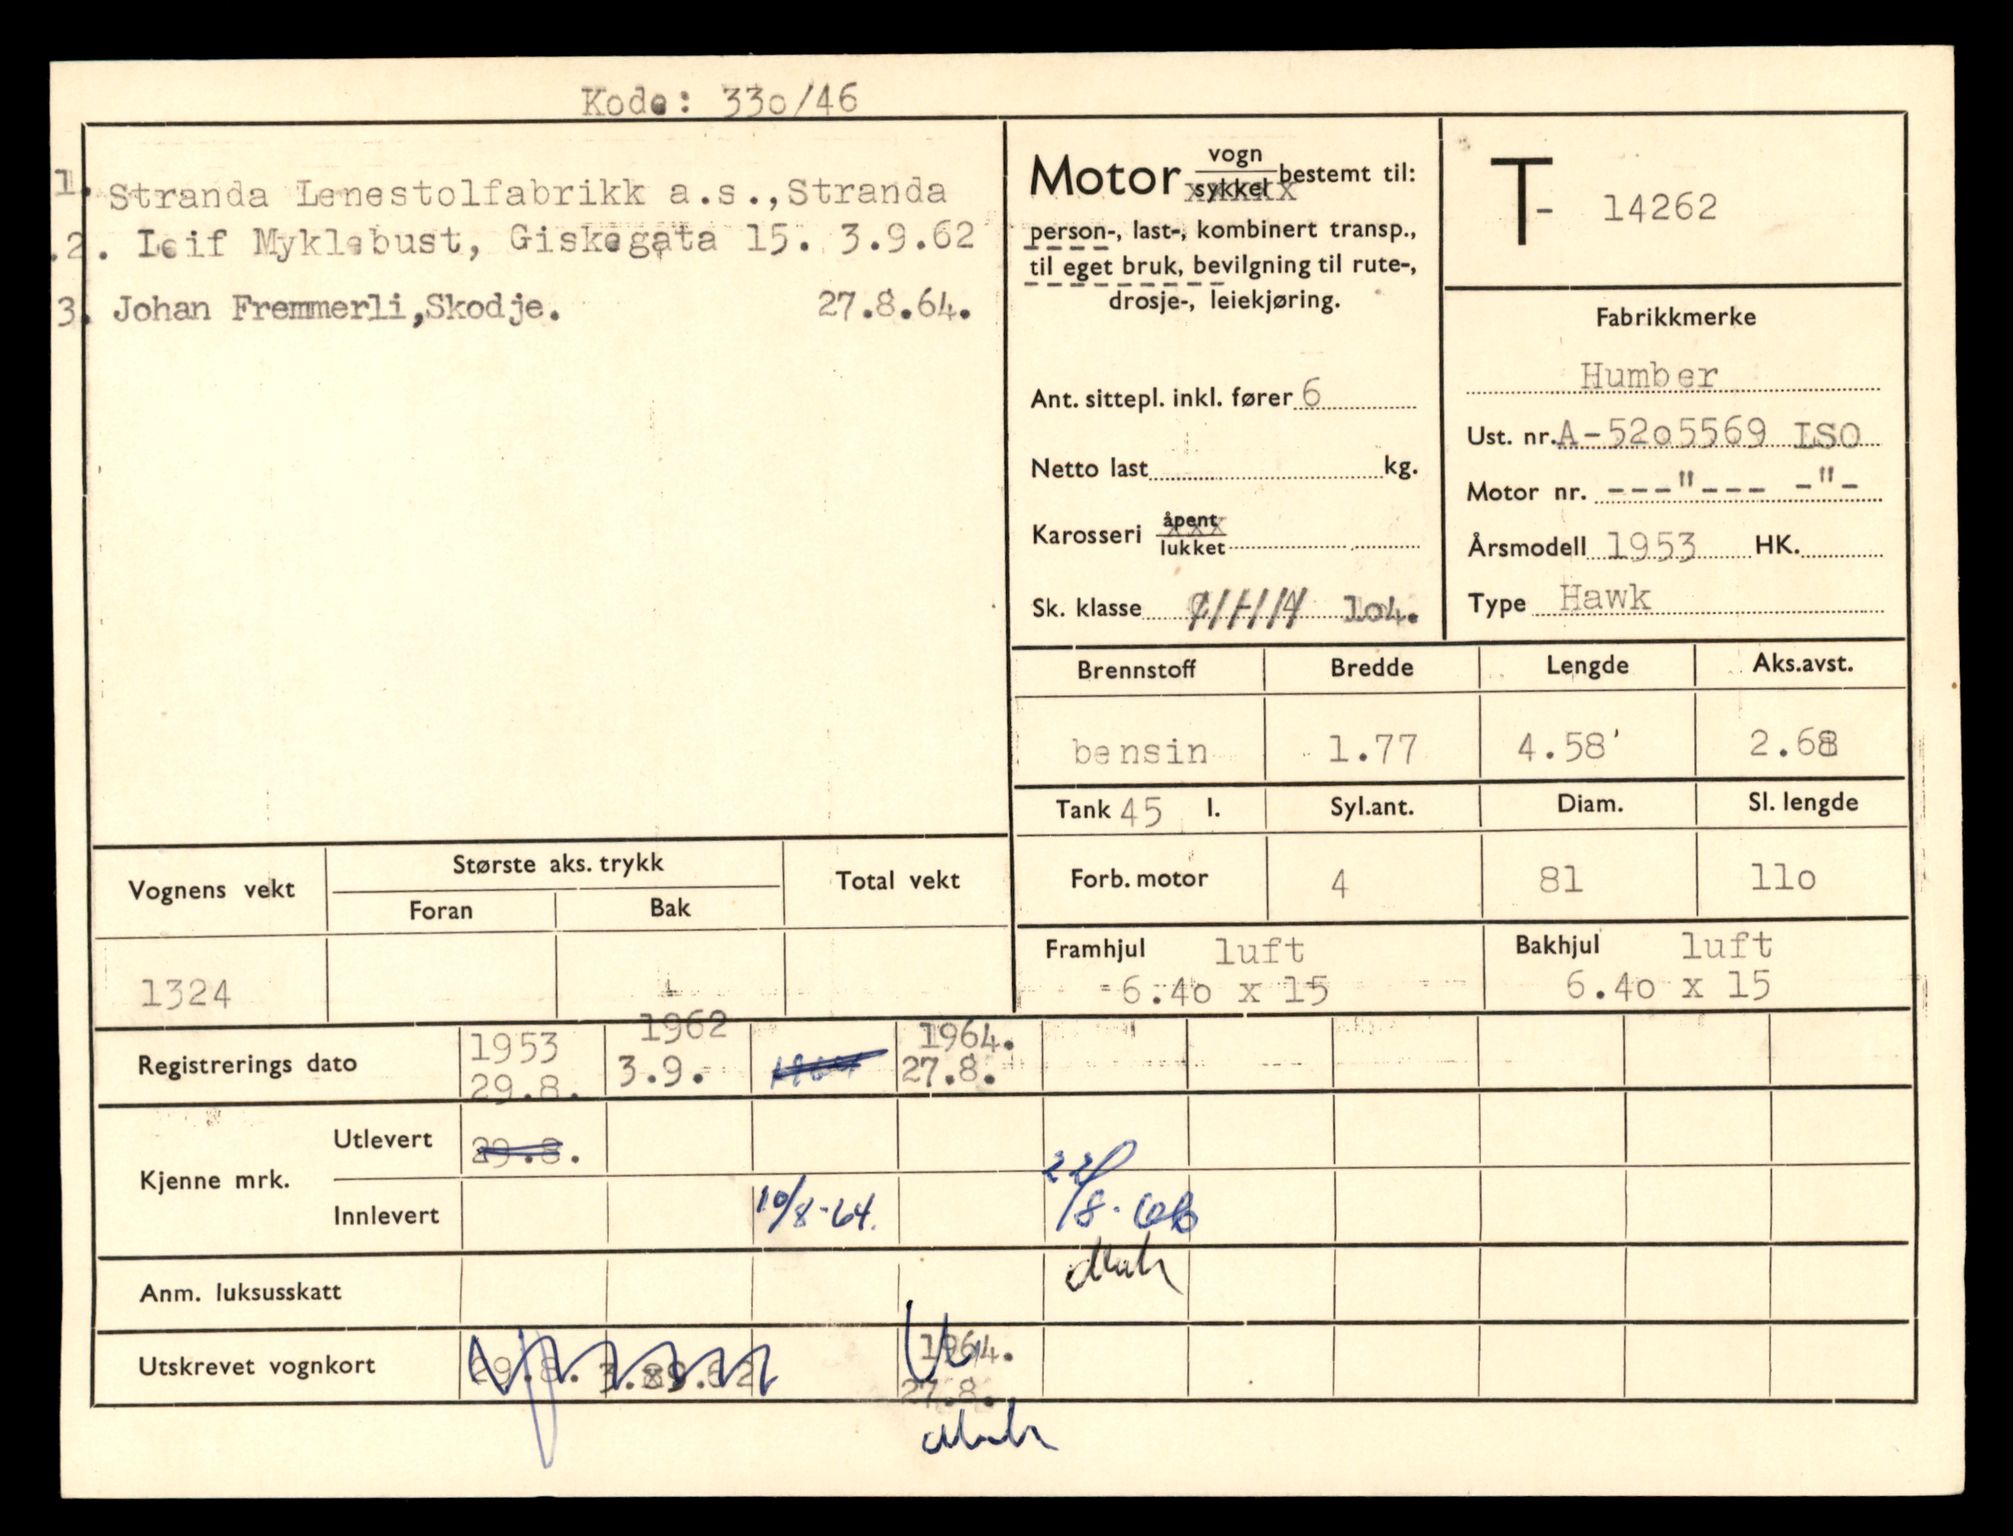 Kode: 33o/46
1. Stranda Lenestolfabrikk a.s.,Stranda
2. Leif Myklebust, Giskegata 15. 3.9.62
3. Johan Fremmerli,Skodje. 27.8.64.
Motor vogn sykkel bestemt til:
person-, last-, kombinert transp.,
til eget bruk, bevilgning til rute-,
drosje-, leiekjøring.
Ant. sittepl. inkl. fører 6
Netto last kg.
Karosseri åpent lukket
Sk. klasse 1o4.
T- 14262
Fabrikkmerke
Humber
Ust. nr. A-52o5569 LSO
Motor nr. ---"--- -"-
Årsmodell 1953 HK.
Type Hawk
Brennstoff Bredde Lengde Aks.avst.
bensin 1.77 4.58' 2.68
Tank 45 l. Syl.ant. Diam. Sl. lengde
Forb. motor 4 81 11o
Framhjul luft Bakhjul luft
6.4o x 15 6.4o x 15
Vognens vekt Største aks. trykk Total vekt
Foran Bak
1324
Registrerings dato 1953 1962 1964.
29.8. 3.9. 27.8.
Kjenne mrk. Utlevert 29.8.
Innlevert 10/8-64. 22/8-
Anm. luksusskatt
Utskrevet vognkort 29.8. 3.9.62 1964.
27.8.